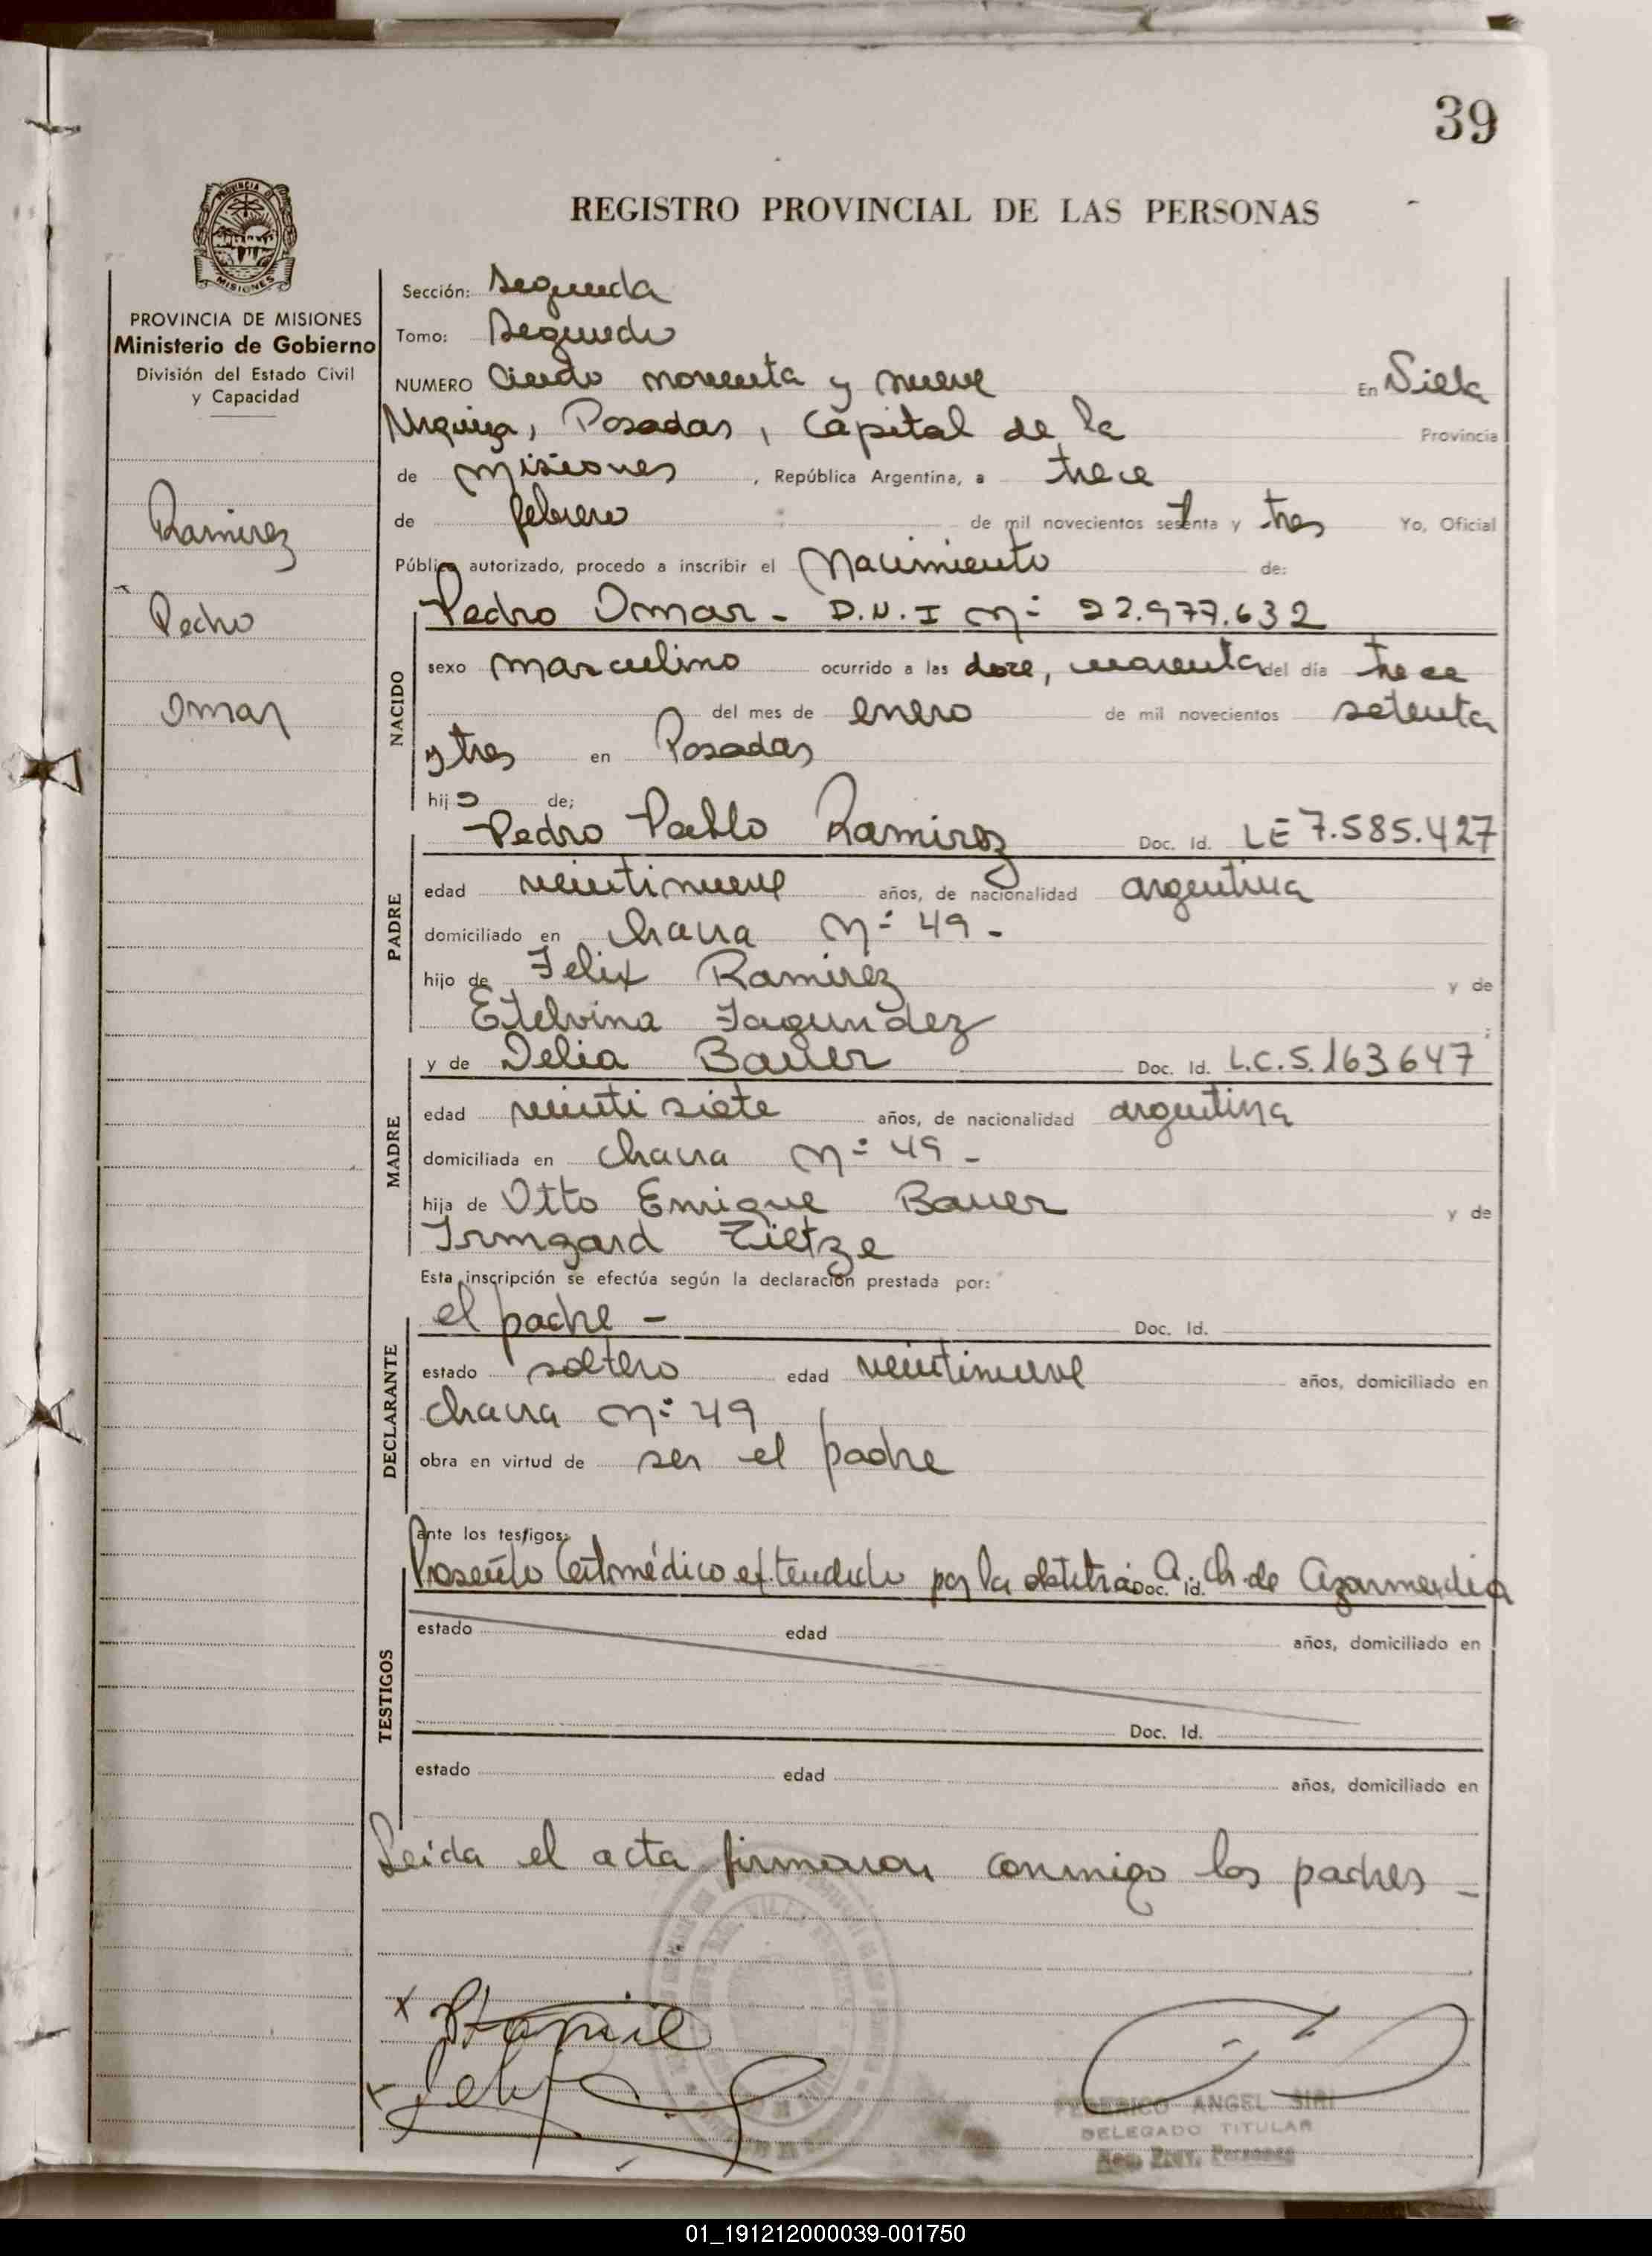 39
REGISTRO PROVINCIAL DE LAS PERSONAS
PROVINCIA DE MISIONES
Ministerio de Gobierno
División del Estado Civil
y Capacidad
Ramirez
Pedro
Omar
Sección: Segunda
Tomo: Segundo
NUMERO Ciento noventa y nueve En Villa
Urquiza, Posadas, Capital de la Provincia
de Misiones, República Argentina, a trece
de febrero de mil novecientos setenta y tres Yo, Oficial
Público autorizado, procedo a inscribir el Nacimiento de:
Pedro Omar - D.N.I Nº 22.977.632
NACIDO
sexo masculino ocurrido a las doce, cuarenta del día trece
del mes de enero de mil novecientos setenta
y tres en Posadas
hijo de;
Pedro Pablo Ramirez Doc. Id. LE 7.585.427
PADRE
edad veintinueve años, de nacionalidad argentina
domiciliado en chacra Nº 49 -
hijo de Felix Ramirez y de
Etelvina Fagundez
y de Delia Bauer Doc. Id. L.C.5.163647
MADRE
edad veinti siete años, de nacionalidad argentina
domiciliada en chacra Nº 49 -
hija de Otto Enrique Bauer y de
Irmgard Tietze
Esta inscripción se efectúa según la declaración prestada por:
el padre - Doc. Id.
DECLARANTE
estado soltero edad veintinueve años, domiciliado en
chacra Nº 49
obra en virtud de ser el padre
ante los testigos:
Presentó Cert. médico extendido por la obstetra Doc. Id. A. Ch. de Azarmendia
TESTIGOS
estado edad años, domiciliado en
Doc. Id.
estado edad años, domiciliado en
Leida el acta firmaron conmigo los padres -
FEDERICO ANGEL SIRI
DELEGADO TITULAR
Reg. Prov. Personas
01_191212000039-001750